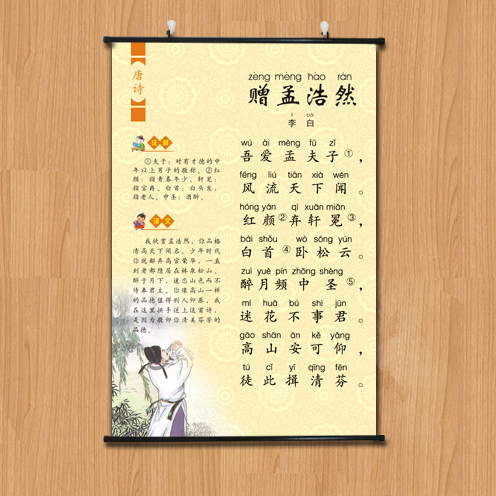 唐诗
zèng mèng hào rán
赠孟浩然
李 白
注释
①夫子：对有才德的中
年以上男子的敬称。②红
颜：指青春年少。轩冕：
指官爵。白首：白头发，
指老人。中圣：酒醉。
译文
我欣赏孟浩然，你品格
清高天下闻名。少年时代
你就鄙弃高官荣华，一直
到老都隐居在林泉松山。
醉于月下，迷恋山花而不
侍奉君主。你像高山一样
的品德值得别人仰慕，我
在这里拱手送上这首诗，
是因为敬仰你清美芬芳的
品德。
wú ài mèng fū zǐ
吾爱孟夫子①，
fēng liú tiān xià wén
风流天下闻。
hóng yán qì xuān miǎn
红颜②弃轩冕③，
bái shǒu wò sōng yún
白首④卧松云。
zuì yuè pín zhōng shèng
醉月频中圣⑤，
mí huā bú shì jūn
迷花不事君。
gāo shān ān kě yǎng
高山安可仰，
tú cǐ yī qīng fēn
徒此揖清芬。